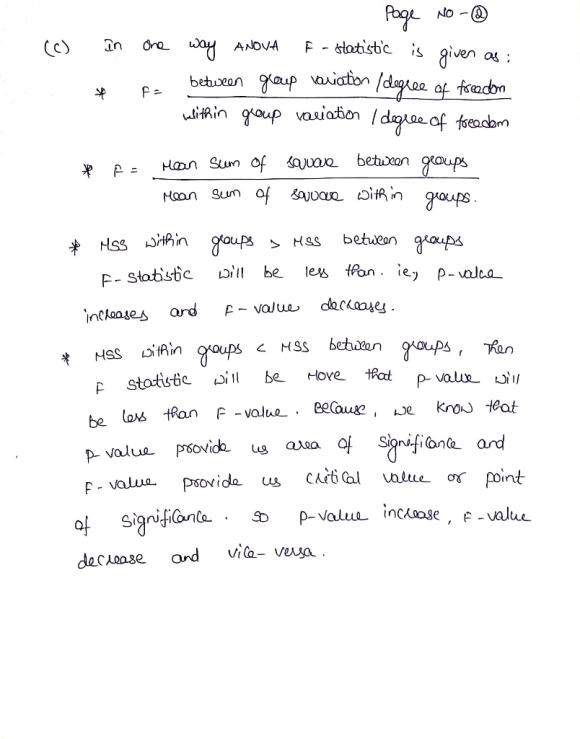 Page No - ②
(c) In one way ANOVA F - statistic is given as :
* F = between group variation / degree of freedom
within group variation / degree of freedom
* F = Mean Sum of square between groups
Mean Sum of square within groups.
* MSS within groups > MSS between groups
F- Statistic will be less than. ie, P-value
increases and F - value decreases.
* MSS within groups < MSS between groups, Then
F statistic will be More that p-value will
be less than F -value. Because, we know that
p-value provide us area of significance and
F-value provide us critical value or point
of significance. so p-value increase, F-value
decrease and vice-versa.